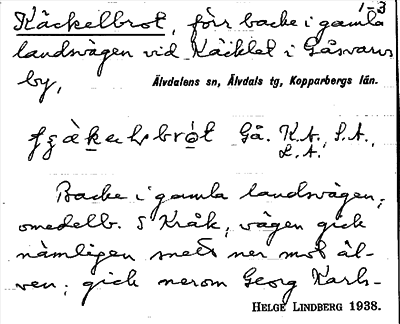 1-3
Käckelbrot, förr backe i gamla
landsvägen vid Käcklet i Gåsvarvs
by,
Älvdalens sn, Älvdals tg, Kopparbergs län.
Gå. K.A., S.A.,
L.A.
Backe i gamla landsvägen,
omedelb. S Kråk, vägen gick
nämligen snett ner mot äl-
ven; gick nerom Georg Karls-
HELGE LINDBERG 1938.